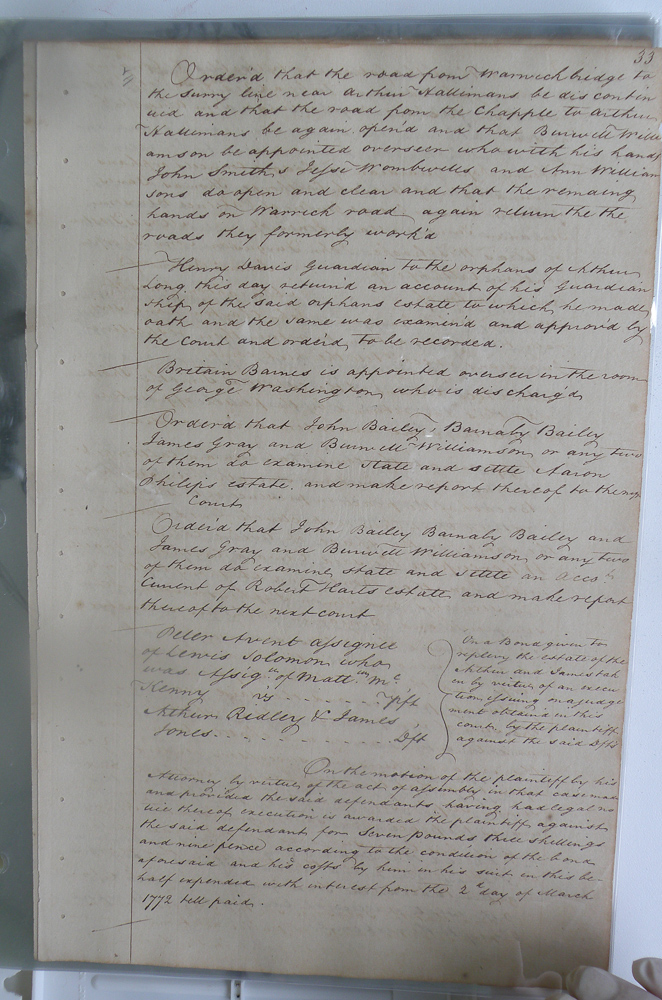 33
Order'd that the road from Warwick bridge to
the Surry line near Arthur Hallimans be discontin
ued and that the road from the Chapple to Arthur
Hallimans be again open'd and that Burwell Willi
amson be appointed overseer who with his hands
John Smiths Jesse Wombwells and Ann William
sons do open and clear and that the remaing
hands on Warrick road again return the the
roads they formerly work'd
Henry Davis Guardian to the orphans of Arthur
Long this day return'd an account of his Guardian
ship of the said orphans estate to which he made
oath and the same was examin'd and approv'd by
the Court and order'd to be recorded.
Britain Barnes is appointed overseer in the room
of George Washington who is discharg'd
Order'd that John Bailey, Barnaby Bailey
James Gray and Burwell Williamson or any two
of them do examine State and settle Aaron
Philips estate and make report thereof to the next
Court
Order'd that John Bailey Barnaby Bailey and
James Gray and Burwell Williamson or any two
of them do examine, state and settle an Acco.t
Current of Robert Harts estate and make report
thereof to the next court
Peter Avent assignee
of Lewis Solomon who
was Assig.n of Matt.w Mc
Kenny vs Plft
Arthur Ridley & James
Jones Dft
On a Bond given to
replevy the estate of the
Arthur and James tak
en by virtue of an execu
tion issuing on a judge
ment obtain'd in this
court by the plaintiff
against the said Dfts
On the motion of the plaintiff by his
Attorney by virtue of the act of assembly in that case made
and provided the said defendants having had legal no
tice thereof execution is awarded the plaintiff against
the said defendant for Seven pounds three shillings
and nine pence according to the condition of the bond
aforesaid and his costs by him in his suit in this be-
half expended with interest from the 2d day of March
1772 till paid.